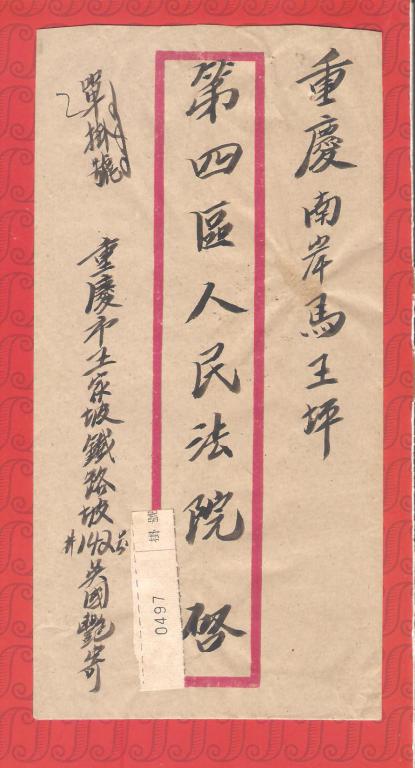 重慶南岸馬王坪
第四區人民法院 啓
單掛號
重慶市王家坡鐵路坡
#142号 吳國艷寄
掛號
0497